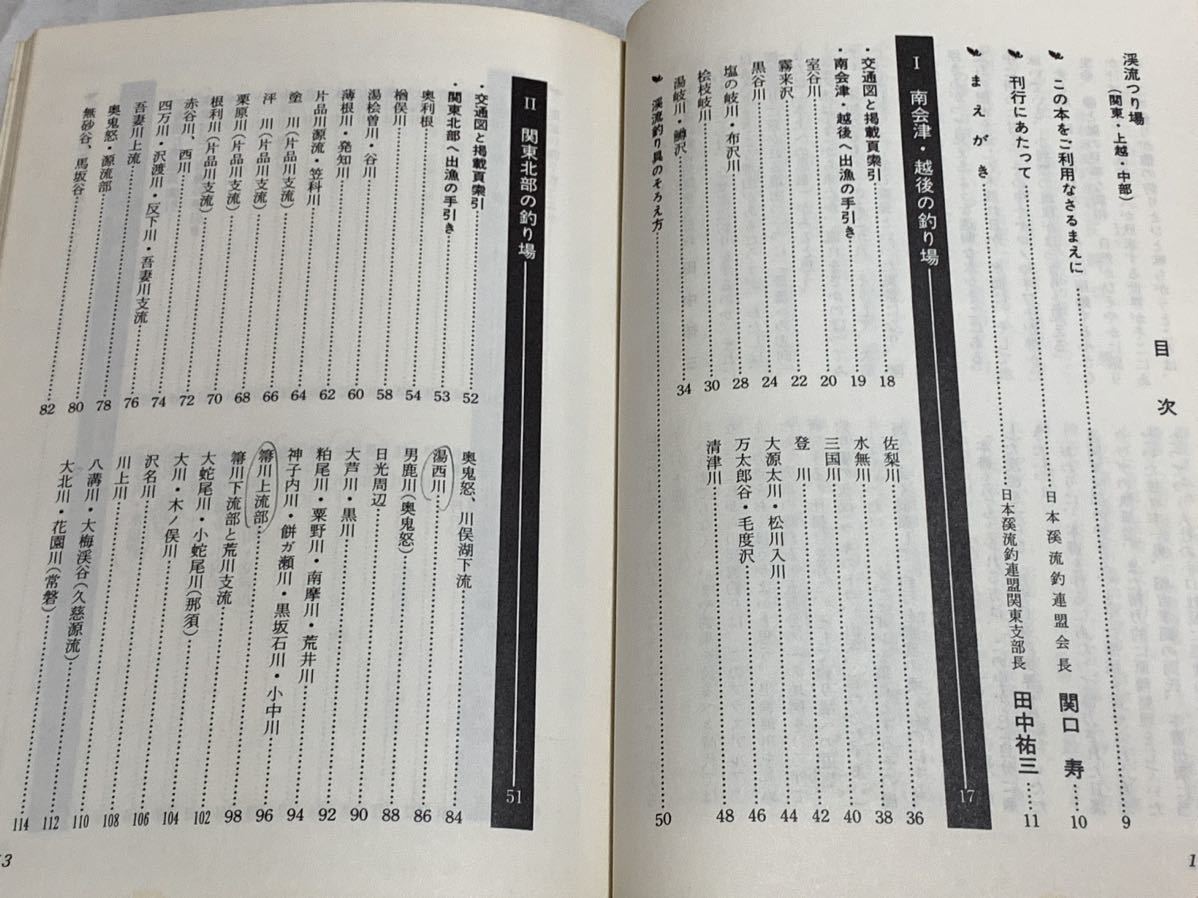 目次
渓流つり場
(関東・上越・中部)
この本をご利用なさるまえに……9
刊行にあたって……日本渓流釣連盟会長 関口 寿……10
まえがき……日本渓流釣連盟関東支部長 田中祐三……11
I 南会津・越後の釣り場 17
・交通図と掲載頁索引……18
・南会津・越後へ出漁の手引き……19
室谷川……20
霧来沢……22
黒谷川……24
塩の岐川・布沢川……28
桧枝岐川……30
湯岐川・鱒沢……34
佐梨川……36
水無川……38
三国川……40
登川……42
大源太川・松川入川……44
万太郎谷・毛度沢……46
清津川……48
渓流釣り具のそろえ方……50
II 関東北部の釣り場 51
・交通図と掲載頁索引……52
・関東北部へ出漁の手引き……53
奥利根……54
楢俣川……58
湯桧曽川・谷川……60
薄根川・発知川……62
片品川源流・笠科川……64
塗川(片品川支流)……66
泙川(片品川支流)……68
栗原川(片品川支流)……70
根利川(片品川支流)……72
赤谷川、西川……74
四万川・沢渡川・反下川・吾妻川支流……76
吾妻川上流……78
奥鬼怒・源流部……80
無砂谷、馬坂谷……82
奥鬼怒、川俣湖下流……84
湯西川……86
男鹿川(奥鬼怒)……88
日光周辺……90
大芦川・黒川……92
粕尾川・粟野川・南摩川・荒井川……94
神子内川・餅ガ瀬川・黒坂石川・小中川……96
箒川上流部……98
箒川下流部と荒川支流……102
大蛇尾川・小蛇尾川(那須)……104
大川・木ノ俣川……106
沢名川……108
川上川……110
八溝川・大梅渓谷(久慈源流)……112
大北川・花園川(常磐)……114